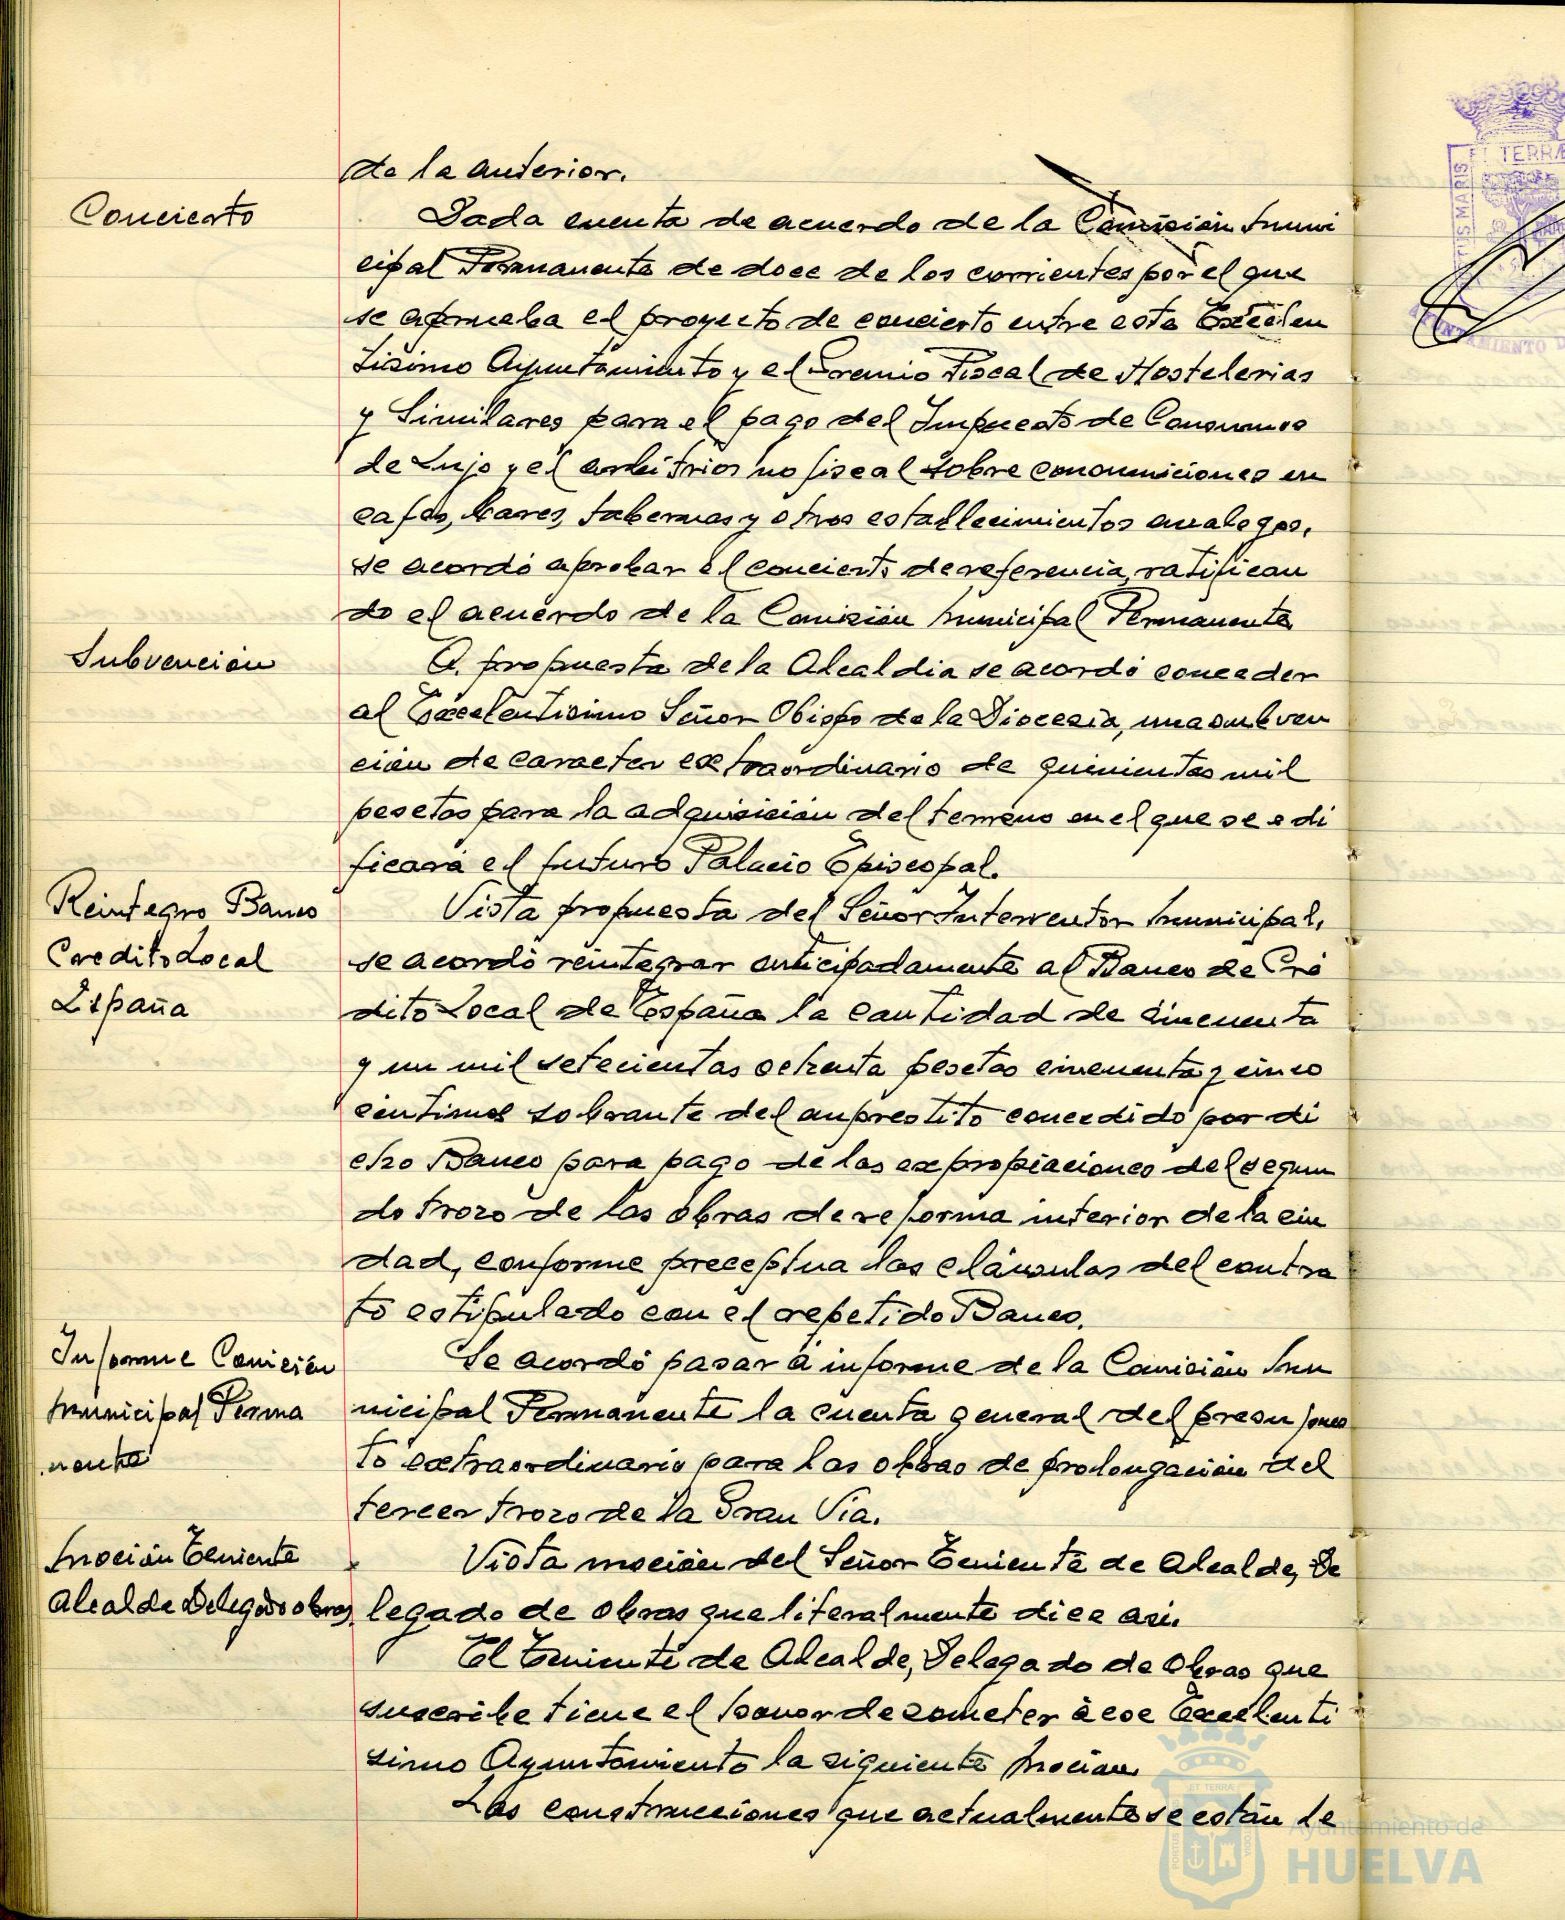 de la anterior.
Concierto
Dada cuenta de acuerdo de la Comisión Muni
cipal Permanente de doce de los corrientes por el que
se aprueba el proyecto de concierto entre este Excelen
tisimo Ayuntamiento y el Gremio Fiscal de Hostelerias
y Similares para el pago del Impuesto de Consumos
de Lujo y el arbitrios no fiscal sobre consumiciones en
cafes, bares, tabernas y otros establecimientos analogos,
se acordó aprobar el concierto de referencia, ratifican
do el acuerdo de la Comisión Municipal Permanente
Subvención
A propuesta de la Alcaldia se acordó conceder
al Excelentisimo Señor Obispo de la Diocesis, una subven
ción de caracter extraordinario de quinientas mil
pesetas para la adquisición del terreno en el que se edi
ficará el futuro Palacio Episcopal.
Reintegro Banco
Credito Local
España
Vista propuesta del Señor Interventor Municipal,
se acordó reintegrar anticipadamente al Banco de Cré
dito Local de España la cantidad de cincuenta
y un mil setecientas ochenta pesetas cincuenta y cinco
centimos sobrante del emprestito concedido por di
cho Banco para pago de las expropiaciones del segun
do trozo de las obras de reforma interior de la ciu
dad, conforme preceptua las cláusulas del contra
to estipulado con el repetido Banco.
Informe Comisión
Municipal Perma
nente
Se acordó pasar á informe de la Comisión Mu
nicipal Permanente la cuenta general del presupues
to extraordinario para las obras de prolongación del
tercer trozo de la Gran Via.
Moción Teniente
Alcalde Delegado obras.
Vista moción del Señor Teniente de Alcalde, De
legado de obras que literalmente dice asi.
El Teniente de Alcalde, Delegado de Obras que
suscribe tiene el honor de someter á ese Excelenti
simo Ayuntamiento la siguiente Moción
Las construcciones que actualmente se están le
ET TERRÆ
TUS MARIS
AYUNTAMIENTO D
Ayuntamiento de
HUELVA